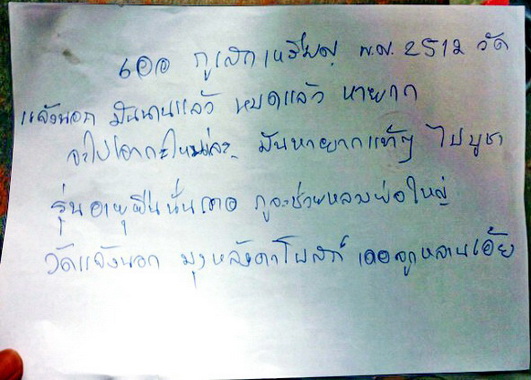 เออ กูเสกเหรียญ พ.ศ. 2512 วัด
แจ้งนอก มันนานแล้ว หมดแล้ว หายาก
จะไปเอากะไหนล่ะ มันหายากแท้ๆ ไปบูชา
รุ่นอายุยืนนั่นเดอ กูจะช่วยหลวงพ่อใหญ่
วัดแจ้งนอก มุงหลังคาโบสถ์ เดอลูกหลานเอ้ย